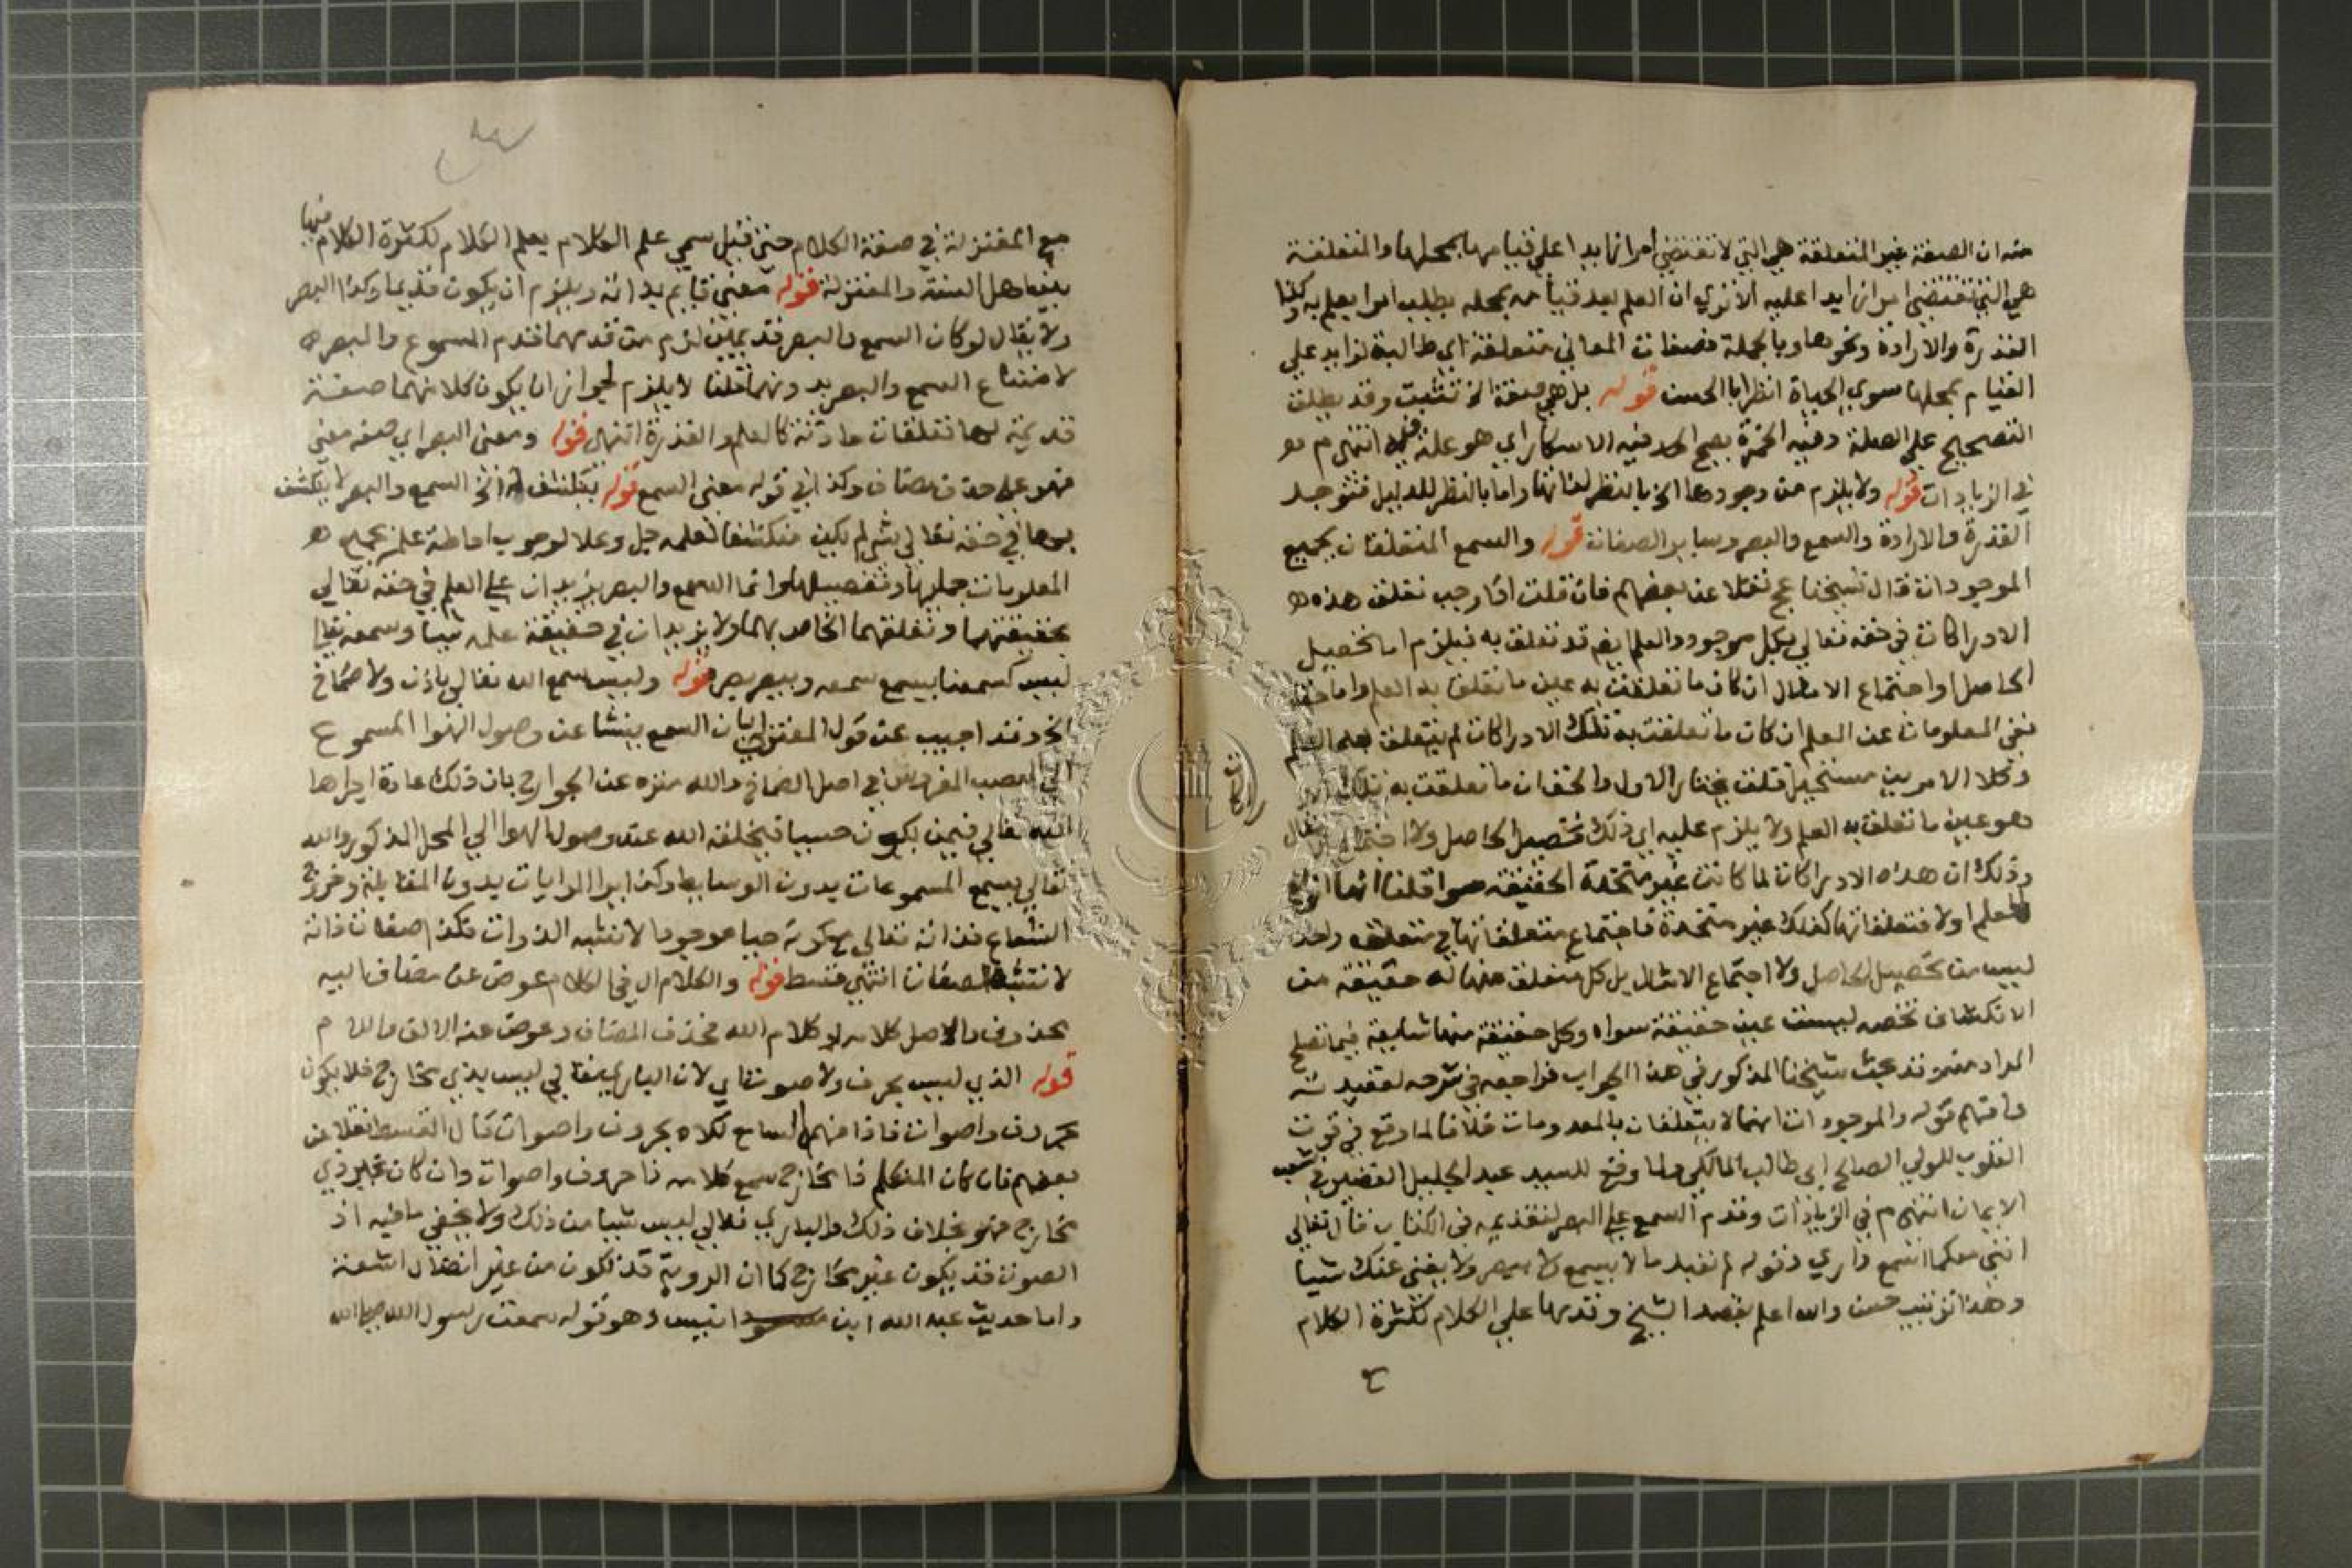 منه ان الصفة غير المتعلقة هي التي لا تقتضي امرا زايدا علي قيامها بمحلها والمتعلقة
هي التي تقتضي امرا زايدا عليه الا تري ان العلم بعد قيامه بمحله يطلب امرا يعلم به وكذا
القدرة والارادة ونحوها وبالجملة فصفات المعاني متعلقة اي طالبة لزايد علي
القيام بمحلها سوي الحياة انظر ابا الحسن قوله بل هي صفة الخ تثبت وقد يطلق
التصحيح علي العلة وفيه الخمرة يصح الا فيه الاسكار اي هو علة انتهي م
في الزيادات قوله ولا يلزم من وجودها الخ بالنظر لذاتها واما بالنظر للدليل فتوجد
القدرة والارادة والسمع والبصر وساير الصفات قوله والسمع المتعلقان بجميع
الموجودات قال شيخنا عج نقلا عن بعضهم فان قلت اذا وجب تعلق هذه
الادراكات في حقه تعالي بكل موجود والعلم قد تعلق به فيلزم اما تحصيل
الحاصل او اجتماع الامثال ان كان ما تعلقت به عين ما تعلق به العلم واما
نفي المعلومات عن العلم ان كان ما تعلقت به تلك الادراكات لم يتعلق به العلم
وكلا الامرين مستحيل قلت نختار الاول والحق ان ما تعلقت به تلك
هو عين ما تعلق به العلم ولا يلزم عليه اي ذلك تحصيل الحاصل ولا اجتماع
وذلك ان هذه الادراكات لما كانت غير متحدة الحقيقة سوا قلنا انها انواع
للعلم او لا فتعلقاتها كذلك غير متحدة فاجتماع متعلقاتها في متعلق واحد
ليس من تحصيل الحاصل ولا اجتماع الامثال بل كل متعلق منها له حقيقة من
الانكشاف تخصه ليست عين حقيقة سواه وكل حقيقة منها
المراد منه وقد بحث شيخنا المذكور في هذا الجواب فراجعه في شرحه لعقيدته
وافهم قوله والموجودات انهما لا يتعلقان بالمعدومات خلافا لما وقع في قوت
القلوب للولي الصالح ابي طالب المالكي ولما وقع للسيد عبد الجليل القصري في شعب
الايمان انتهي م في الزيادات وقدم السمع علي البصر لتقديمه في الكتاب قال تعالي
انني معكما اسمع واري وقوله لم تعبد ما لا يسمع ولا يبصر ولا يغني عنك شيا
وهذا ترتيب حسن والله اعلم بقصد الشيخ وقدمها علي الكلام لكثرة الكلام
مع المعتزلة في صفة الكلام حتي قيل سمي علم الكلام بعلم الكلام لكثرة الكلام فيها
بين اهل السنة والمعتزلة قوله معني قايم بذاته ويلزم ان يكون قديما وكذا البصر
ولا يقال لو كان السمع والبصر قديمين لزم من قدمهما قدم المسموع والبصر
لامتناع السمع والبصر بدونهما قلنا لا يلزم لجواز ان يكون كلا منهما صفة
قديمة لها تعلقات حادثة كالعلم والقدرة انتهي قوله ومعني البصر اي صفه معني
فهو علي حذف مضاف وكذا في قوله معني السمع قوله ينكشف به الخ السمع والبصر لا ينكشف
بهما في حقه تعالي شي لم يكن منكشفا لعلمه جل وعلا لوجوب احاطة علمه بجميع
المعلومات جملها وتفصيلها وانما السمع والبصر يزيدان علي العلم في حقه تعالي
بحقيقتهما وتعلقهما الخاص بهما ولا يزيدان في حقيقة علمه شيا وسمعه تعالي
ليس كسمعنا يسمع سمعه ويبصر بصره قوله وليس سمع الله تعالي باذن ولا صماخ
الخ وقد اجيب عن قول المعتزلة بان السمع ينشا عن وصول الهوا المسموع
الي العصب المفروش في اصل الصماخ والله منزه عن الجوارح بان ذلك عادة اجراها
الله تعالي فيمن يكون حسيا فيخلقه الله عند وصول الهوا الي المحل المذكور والله
تعالي يسمع المسموعات بدون الوسايط وكذا يري المرايات بدون المقابلة وخروج
الشعاع فذاته تعالي مع كونه حيا موجودا لا تشبه الذوات فكذا صفات ذاته
لا تشبه الصفات انتهي قسط قوله والكلام ال في الكلام عوض عن مضاف اليه
محذوف والاصل كلامه او كلام الله فحذف المضاف وعوض عنه الالف واللام
قوله الذي ليس بحرف ولا صوت اي لان الباري تعالي ليس بذي مخارج فلا يكون
بحروف واصوات فاذا فهم السامع تلاه بحروف واصوات قال القسط نقلا عن
بعضهم فان كان المتكلم ذا مخارج سمع كلامه ذا حروف واصوات وان كان غير ذي
مخارج فهو بخلاف ذلك والباري تعالي ليس شيا من ذلك ولا يخفي ما فيه اذ
الصوت قد يكون غير مخارج كما ان الروية قد تكون من غير اتصال اشعة
واما حديث عبد الله ابن انيس وهو قوله سمعت رسول الله صلي الله